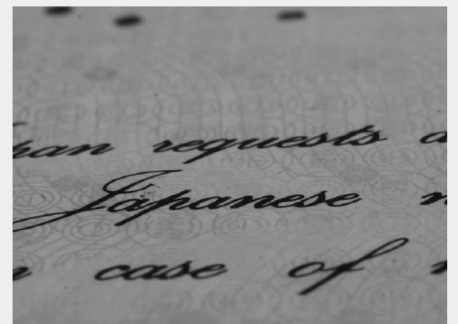 pan requests a
Japanese
case of